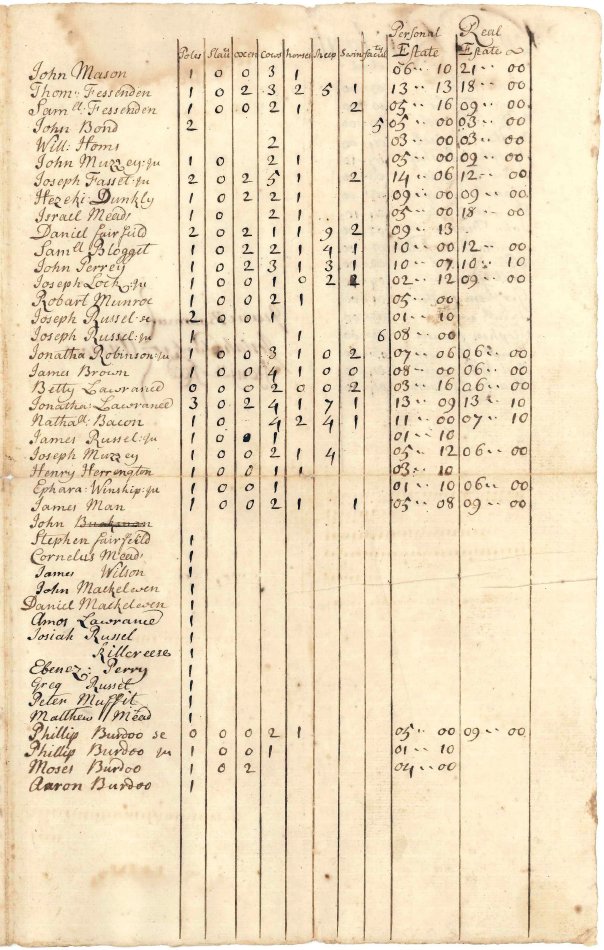 Personal Real
Poles Slav oxen Cows horses Sheep Swin facult Estate Estate
John Mason 1 0 0 3 1 06 10 21 00
Thom: Fessenden 1 0 2 3 2 5 1 13 13 18 00
Samll Fessenden 1 0 0 2 1 2 05 16 09 00
John Bond 2 5 05 00 03 00
Will: Homs 2 03 00 03 00
John Muzzey: ju 1 0 2 1 05 00 09 00
Joseph Fasset: ju 2 0 2 5 1 2 14 06 12 00
Hezeki: Dunkly 1 0 2 2 1 09 00 09 00
Israel Mead 1 0 2 1 05 00 18 00
Daniel fairfeild 2 0 2 1 1 9 2 09 13
Samll Blogget 1 0 2 2 1 4 1 10 00 12 00
John Perrey 1 0 2 3 1 3 1 10 07 10 10
Joseph Lock: ju 1 0 0 1 0 2 2 02 12 09 00
Robart Munroe 1 0 0 2 1 05 00
Joseph Russel: se 2 0 0 1 01 10
Joseph Russel: ju 1 1 6 08 00
Jonatha Robinson: ju 1 0 0 3 1 0 2 07 06 06 00
James Brown 1 0 0 4 1 0 0 08 00 06 00
Betty Lawrance 0 0 0 2 0 0 2 03 16 06 00
Jonatha: Lawrance 3 0 2 4 1 7 1 13 09 13 10
Nathall: Bacon 1 0 4 2 4 1 11 00 07 10
James Russel: ju 1 0 0 1 01 10
Joseph Muzzey 1 0 0 2 1 4 05 12 06 00
Henry Herrengton 1 0 0 1 1 03 10
Ephara: Winship: ju 1 0 0 1 01 10 06 00
James Man 1 0 0 2 1 1 05 08 09 00
John
Stephen fairfeild 1
Cornelus Mead 1
James Wilson 1
John Mackelwen 1
Daniel Mackelwen 1
Amos Lawrance 1
Josiah Russel 1
Killcreese 1
Ebenez: Perry 1
Greg Russel 1
Peter Muffit 1
Matthew Mead 1
Phillip Burdoo se 0 0 0 2 1 05 00 09 00
Phillip Burdoo ju 1 0 0 1 01 10
Moses Burdoo 1 0 2 04 00
Aaron Burdoo 1